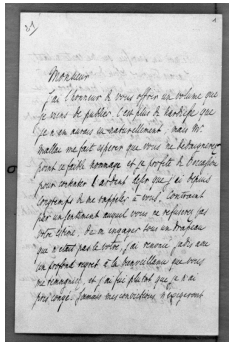 21
1
Monsieur
J'ai l'honneur de vous offrir un volume que
je viens de publier. C'est plus de hardiesse que
je n'en aurais eu naturellement, mais Mr.
mallac me fait espérer que vous ne dédaignerez
point ce faible hommage et je profite de l'occasion
pour contenter l'ardent désir que j'ai depuis
longtemps de me rappeler à vous. Contraint
par un sentiment auquel vous ne refuserez pas
votre estime, de m'engager sous un drapeau
qui n'était pas le vôtre, j'ai renoncé jadis avec
un profond regret à la bienveillance que vous
me témoigniez, et j'ai fui plutôt que je n'ai
pris congé. Jamais mes convictions n'exigeront